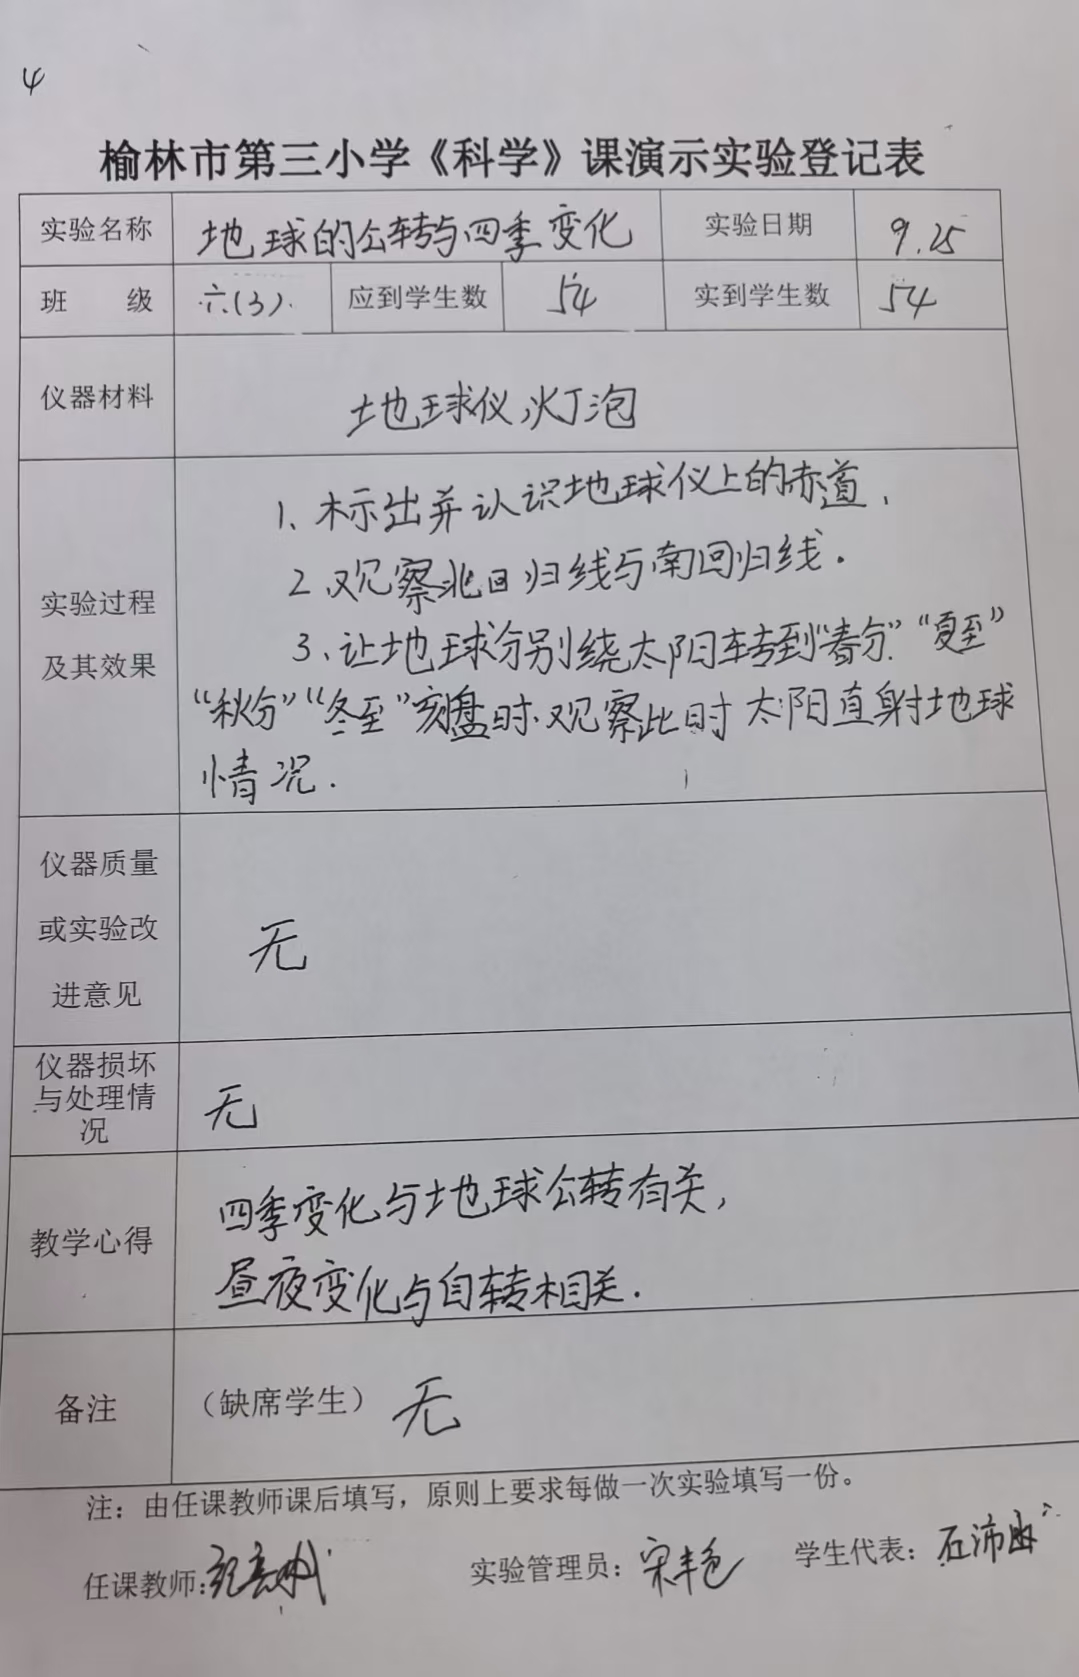 4
榆林市第三小学《科学》课演示实验登记表
实验名称 地球的公转与四季变化 实验日期 9.25
班 级 六(3). 应到学生数 54 实到学生数 54
仪器材料 地球仪,灯泡
实验过程
及其效果
1、标出并认识地球仪上的赤道,
2.观察北回归线与南回归线.
3、让地球分别绕太阳转到“春分”“夏至”
“秋分”“冬至”刻盘时.观察此时太阳直射地球
情况.
仪器质量
或实验改
进意见
无
仪器损坏
与处理情
况
无
教学心得
四季变化与地球公转有关,
昼夜变化与自转相关.
备注 (缺席学生) 无
注：由任课教师课后填写，原则上要求每做一次实验填写一份。
任课教师: 实验管理员: 宋丰色 学生代表: 石沛